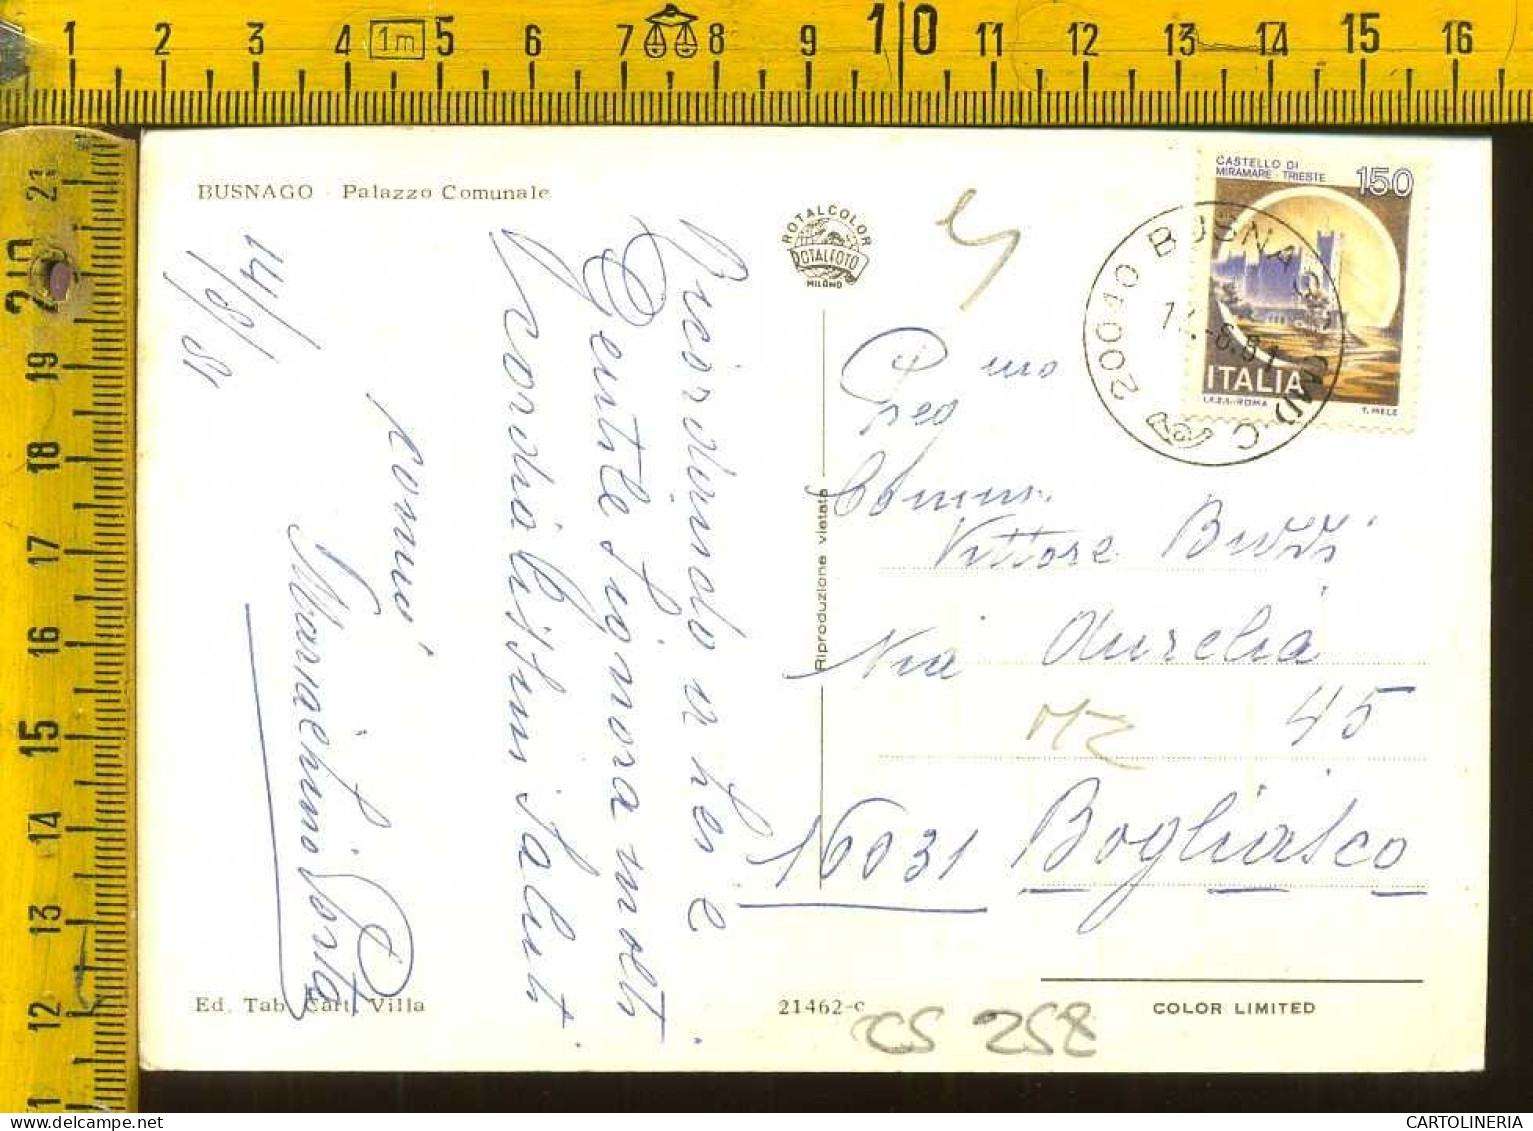 1 2 3 4 1m 5 6 7 8 9 10 11 12 13 14 15 16
21
20
19
18
17
16
15
14
13
12
11
BUSNAGO - Palazzo Comunale
14/8/81
Ricordando a lei e
Gentile Signora molti
cordialissimi saluti.
ROTALCOLOR
ROTALFOTO
MILANO
Riproduzione vietata
CASTELLO DI
MIRAMARE - TRIESTE
150
ITALIA
I.P.Z.S. - ROMA
T. MELE
20040 BUSNAGO
Preg mo
Comm.
Vittore Buzzi
Via Aurelia
45
MZ
16031 Bogliasco
Ed. Tab. Cart. Villa
21462-c
CS 258
COLOR LIMITED
CARTOLINERIA